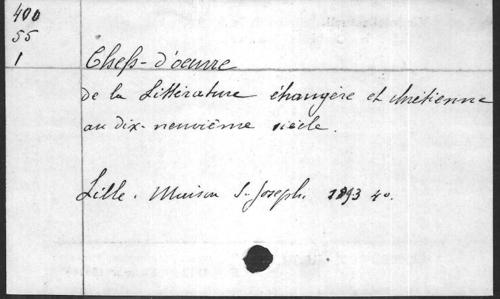 400
55
1
Chefs-d'oeuvre
de la Littérature étrangère et chrétienne
au dix-neuvième siècle.
Lille. Maison S-Joseph. 1893 4o.